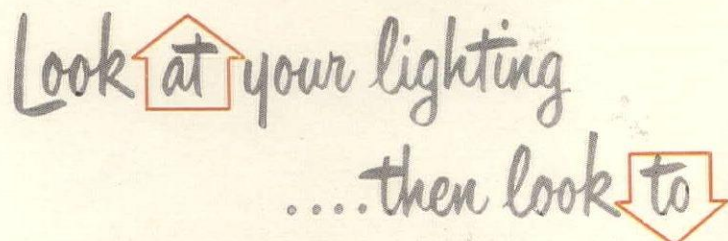 Look at your lighting
....then look to